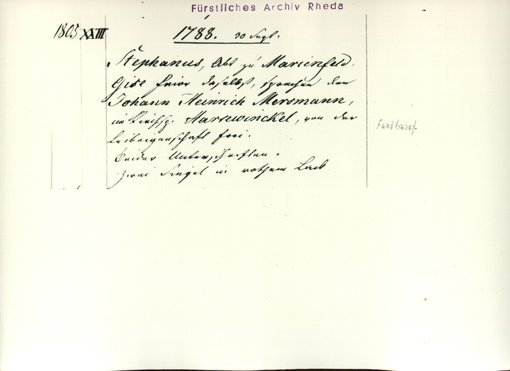 Fürstliches Archiv Rheda
1803 XXIII
1788. 30 Sept.
Stephanus, Abt zu Marienfeld.
Gise Prior daselbst, sprechen den
Johann Heinrich Mersmann,
im Kirchsp. Harsewinckel, von der
Leibeigenschaft frei.
Beider Unterschriften.
Zwei Siegel in rothem Lack
Freibrief